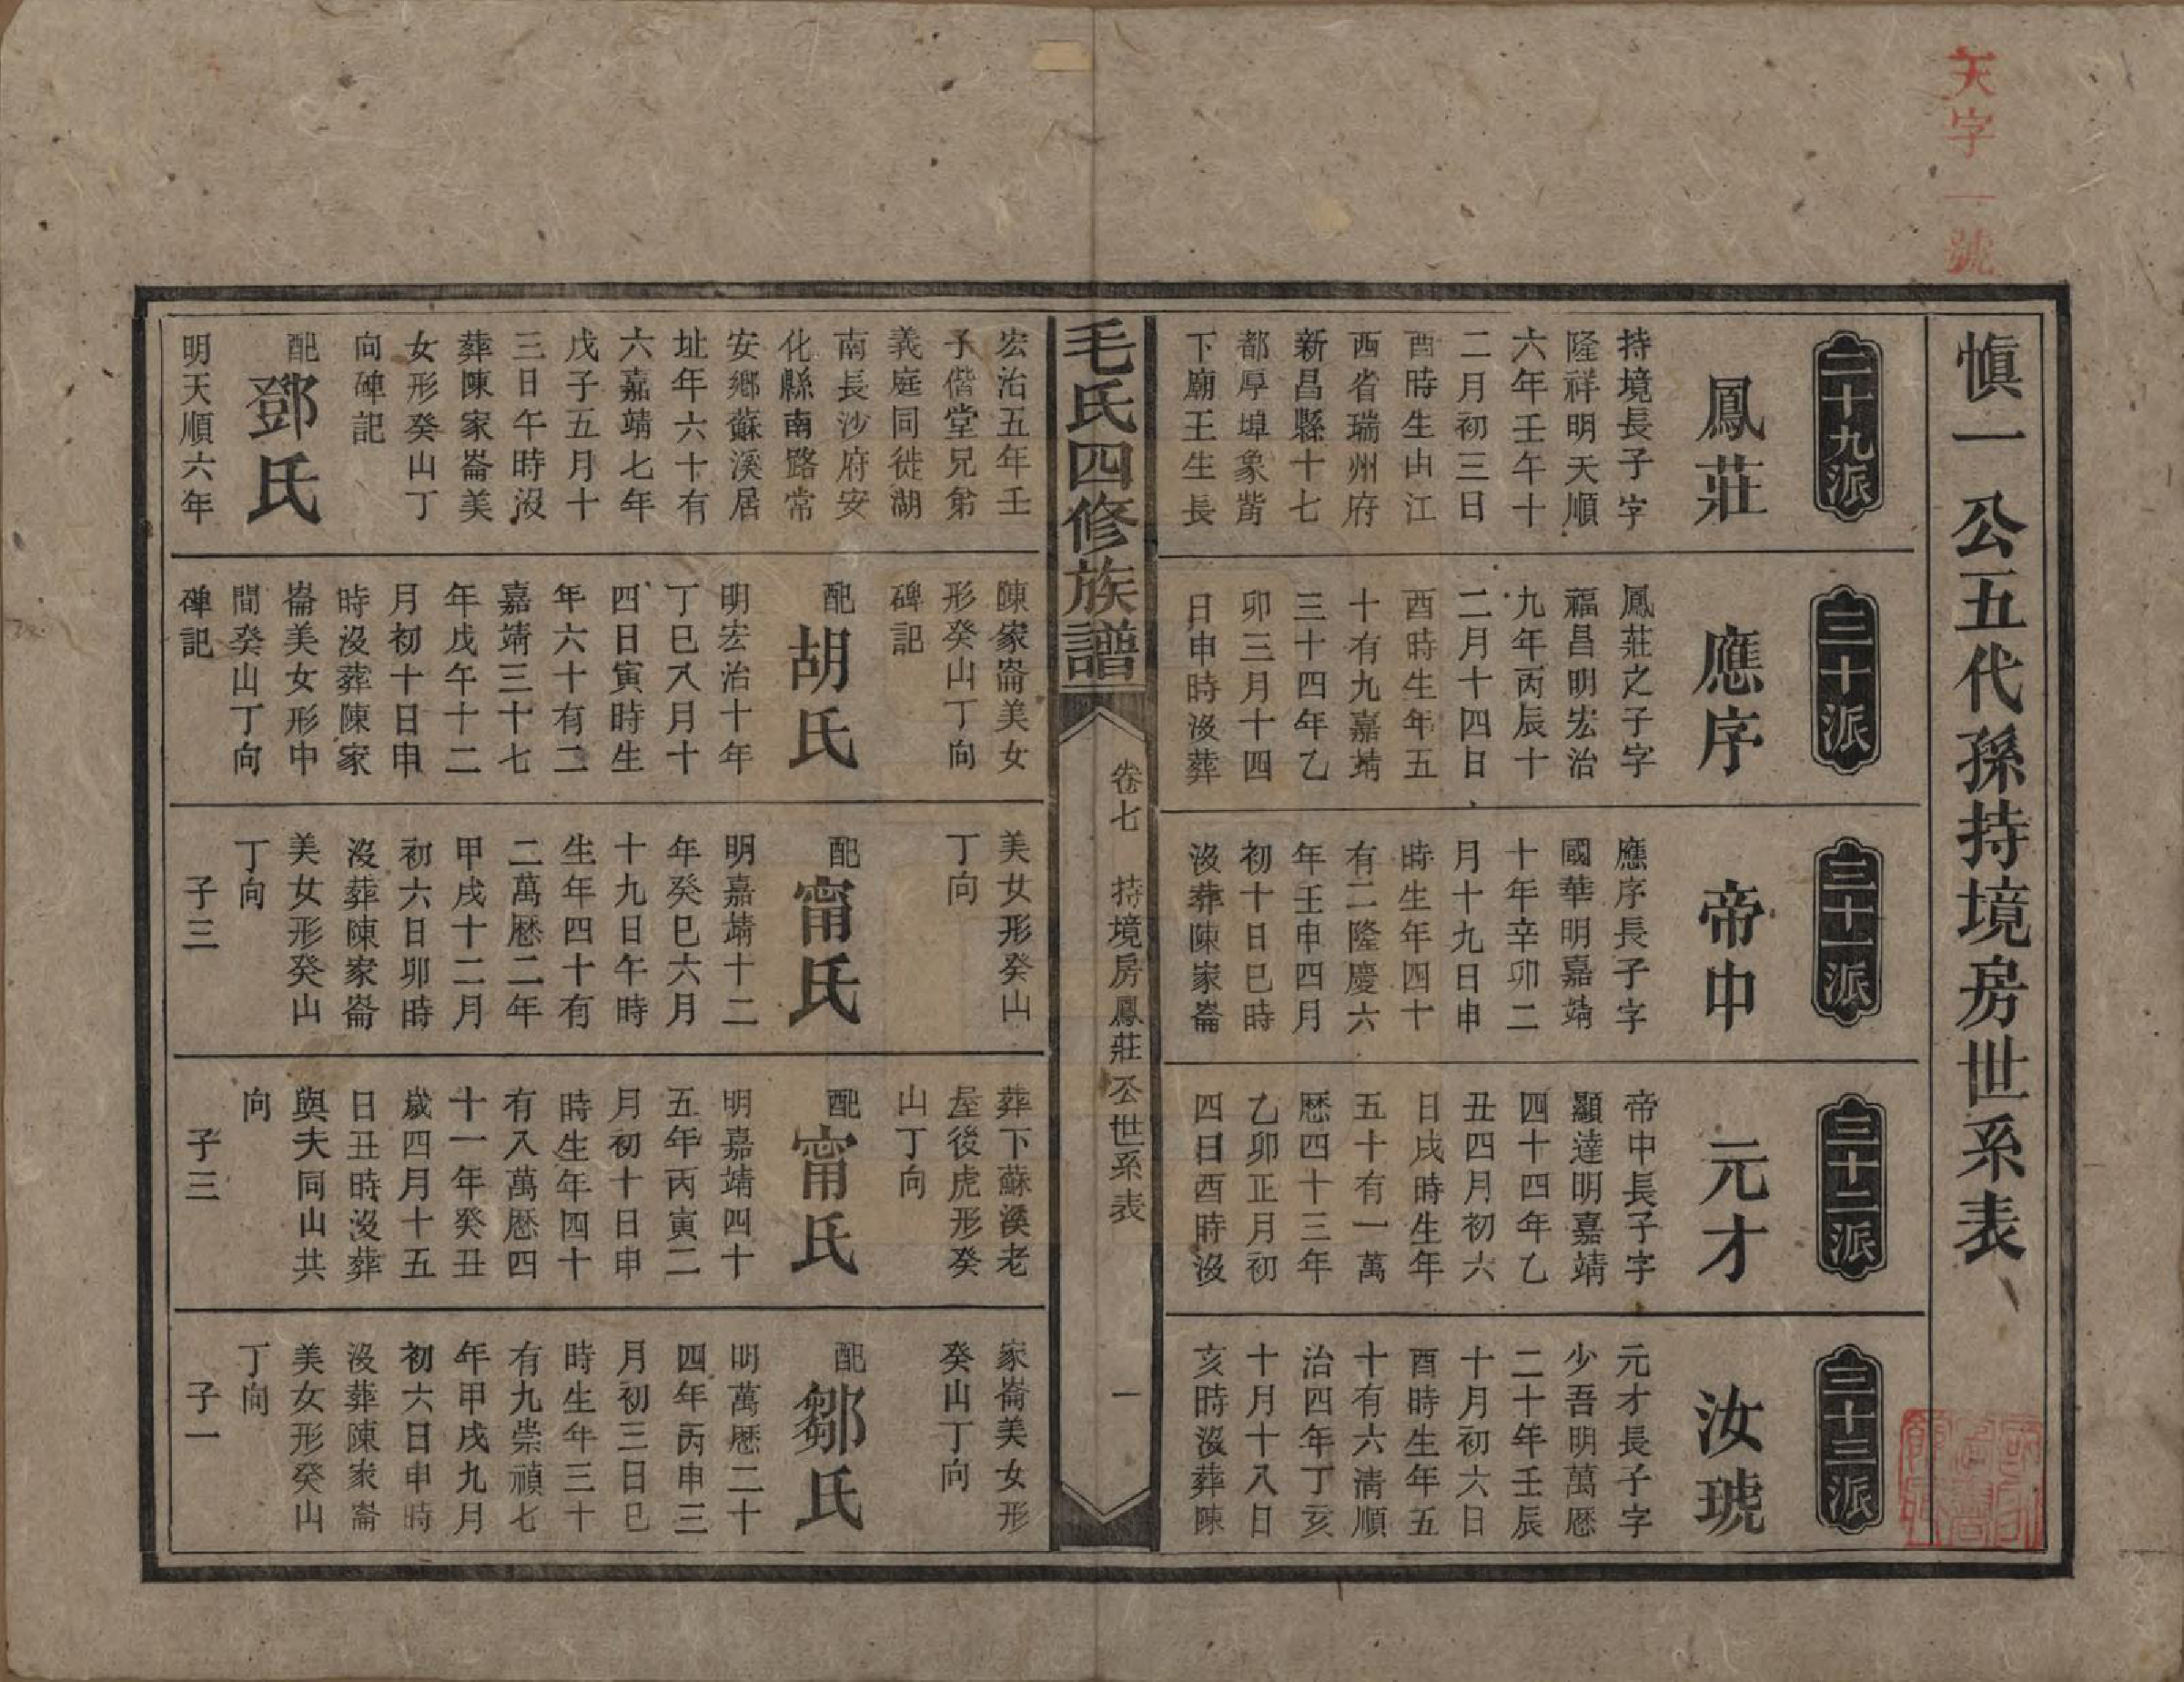 天字一號
慎一公五代孫持境房世系表
二十九派
鳳莊
持境長子字
隆祥明天順
六年壬午十
二月初三日
酉時生由江
西省瑞州府
新昌縣十七
都厚埠象觜
下廟王生長
宏治五年壬
子偕堂兄弟
義庭同徙湖
南長沙府安
化縣南路常
安鄉蘇溪居
址年六十有
六嘉靖七年
戊子五月十
三日午時沒
葬陳家崙美
女形癸山丁
向碑記
配鄧氏
明天順六年
三十派
應序
鳳莊之子字
福昌明宏治
九年丙辰十
二月十四日
酉時生年五
十有九嘉靖
三十四年乙
卯三月十四
日申時沒葬
陳家崙美女
形癸山丁向
碑記
配胡氏
明宏治十年
丁巳八月十
四日寅時生
年六十有二
嘉靖三十七
年戊午十二
月初十日申
時沒葬陳家
崙美女形中
間癸山丁向
碑記
三十一派
帝中
應序長子字
國華明嘉靖
十年辛卯二
月十九日申
時生年四十
有二隆慶六
年壬申四月
初十日巳時
沒葬陳家崙
美女形癸山
丁向
配甯氏
明嘉靖十二
年癸巳六月
十九日午時
生年四十有
二萬厯二年
甲戌十二月
初六日卯時
沒葬陳家崙
美女形癸山
丁向
子三
三十二派
元才
帝中長子字
顯達明嘉靖
四十四年乙
丑四月初六
日戌時生年
五十有一萬
厯四十三年
乙卯正月初
四日酉時沒
葬下蘇溪老
屋後虎形癸
山丁向
配甯氏
明嘉靖四十
五年丙寅二
月初十日申
時生年四十
有八萬厯四
十一年癸丑
歲四月十五
日丑時沒葬
與夫同山共
向
子三
三十三派
汝琥
元才長子字
少吾明萬厯
二十年壬辰
十月初六日
酉時生年五
十有六清順
治四年丁亥
十月十八日
亥時沒葬陳
家崙美女形
癸山丁向
配鄒氏
明萬厯二十
四年丙申三
月初三日巳
時生年三十
有九崇禎七
年甲戌九月
初六日申時
沒葬陳家崙
美女形癸山
丁向
子一
毛氏四修族譜
卷七 持境房鳳莊公世系表 一